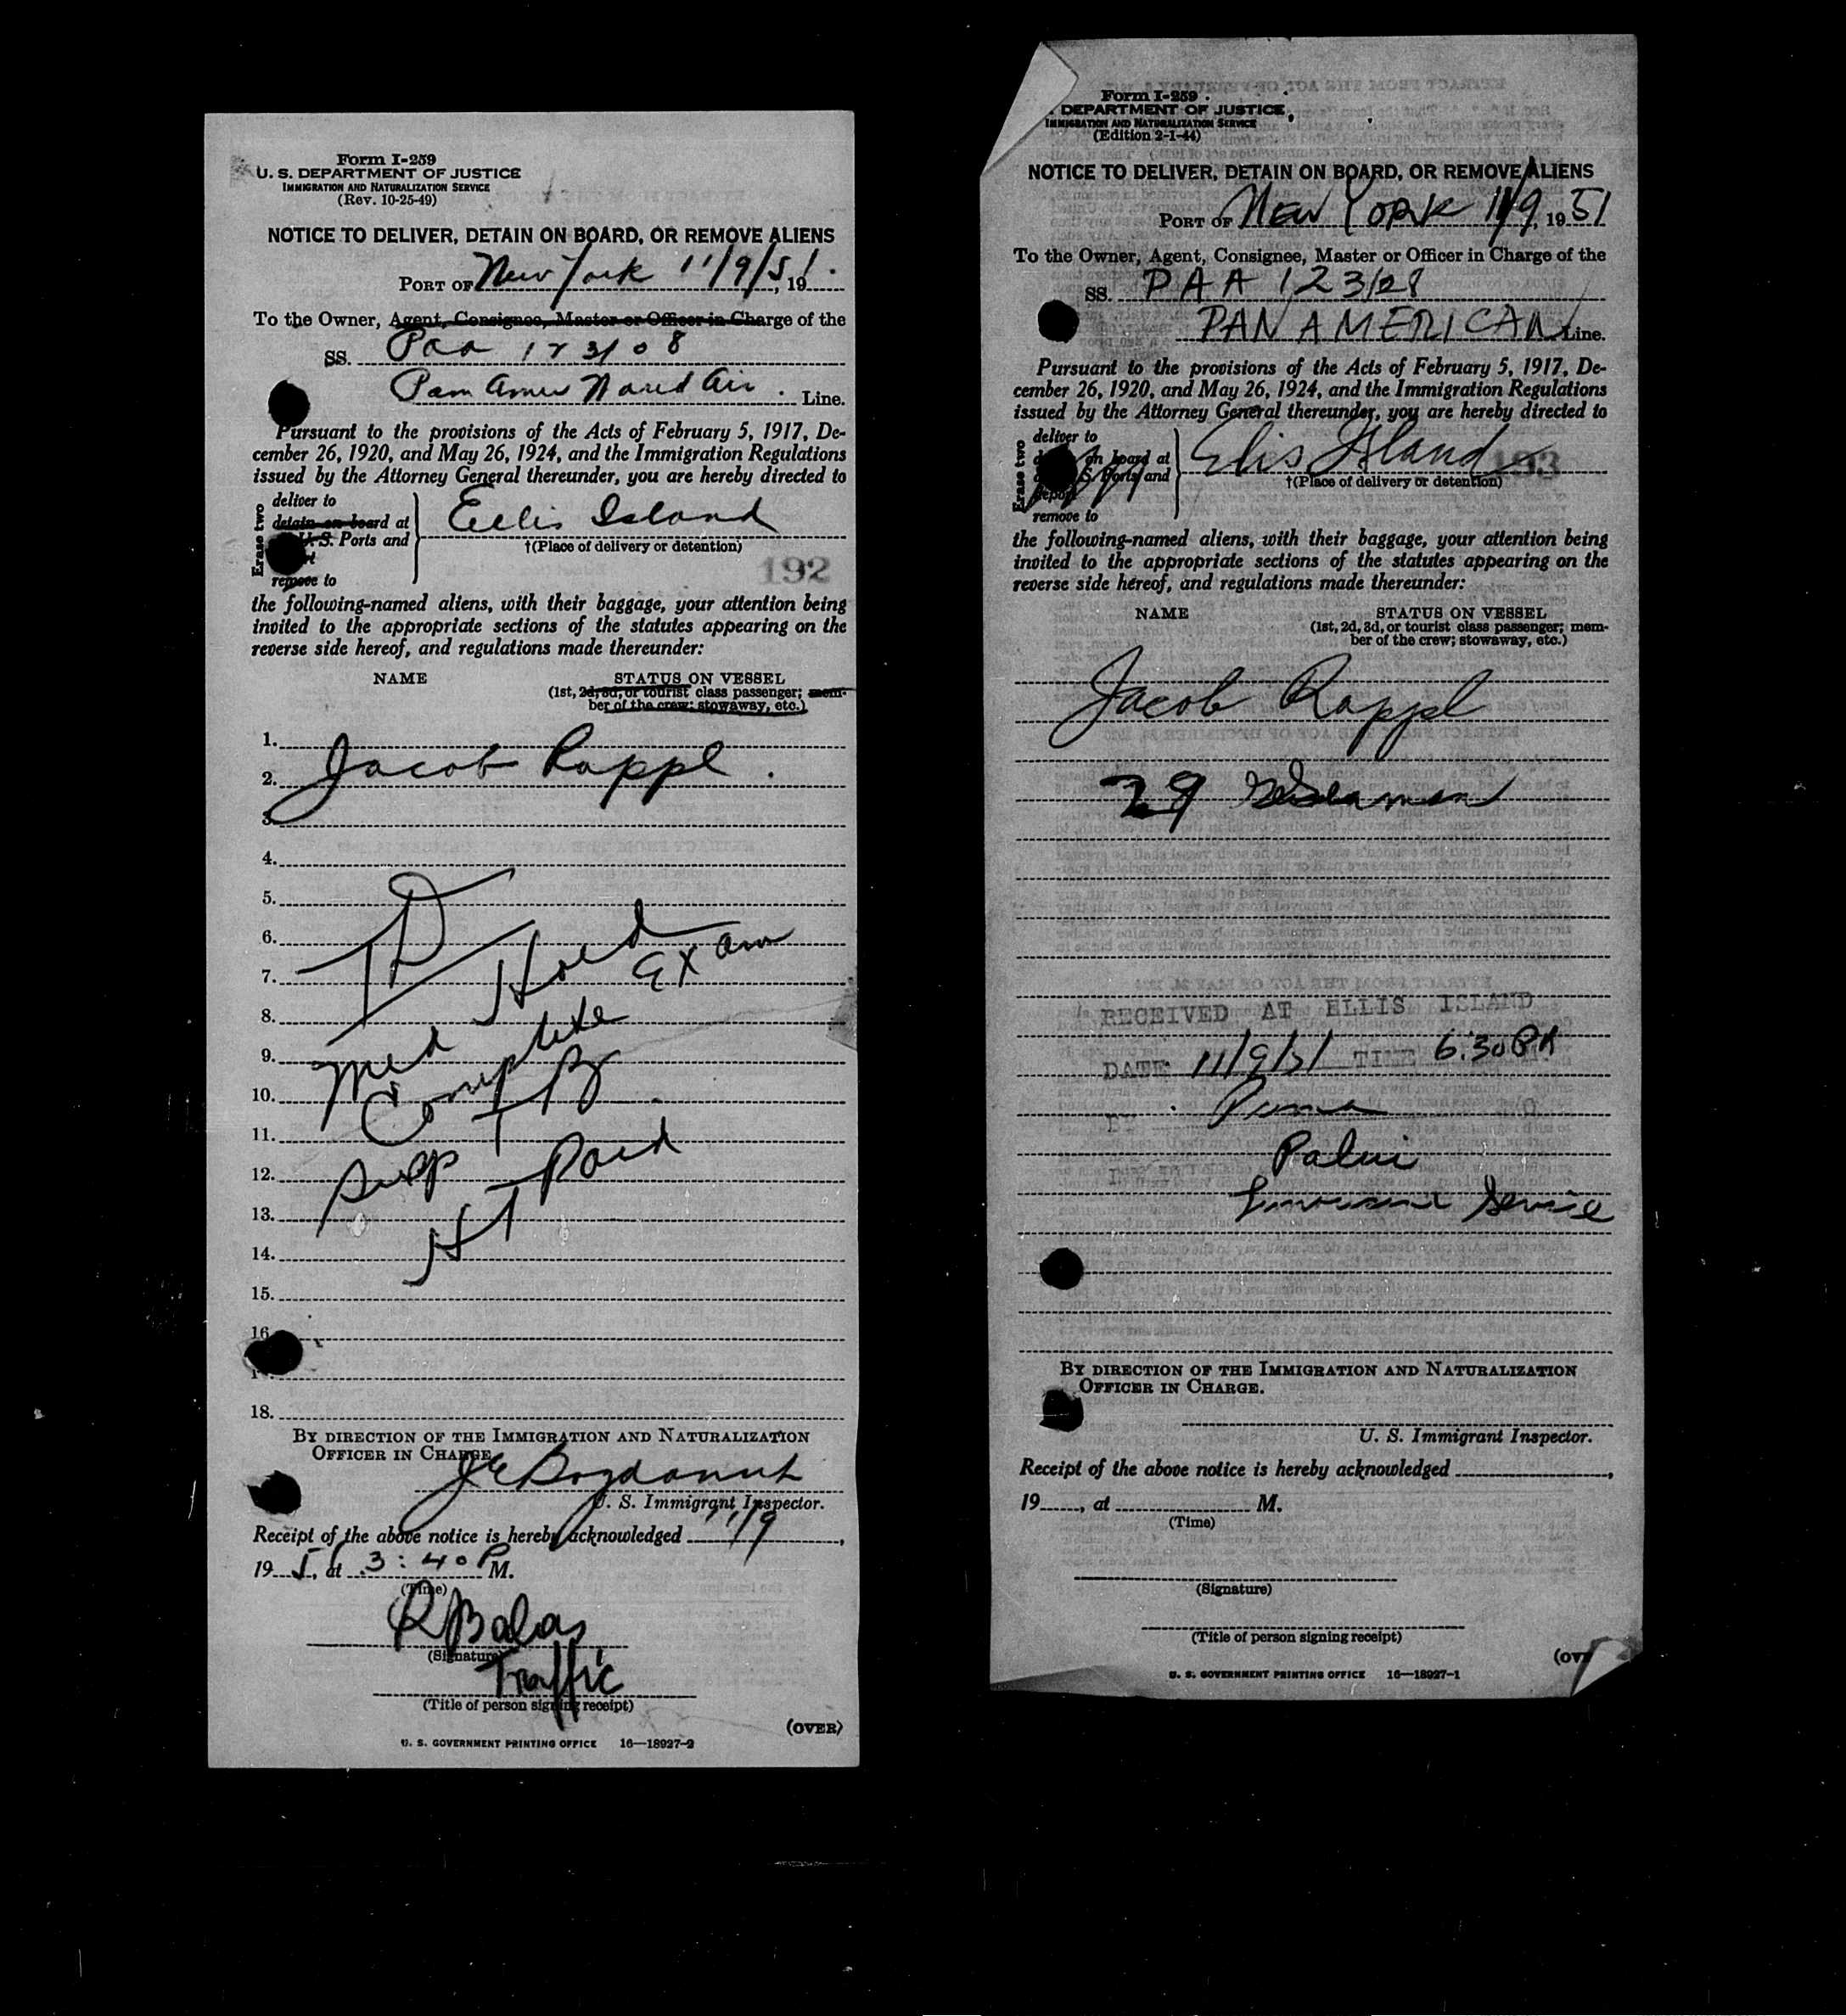 Form I-259
U. S. DEPARTMENT OF JUSTICE
IMMIGRATION AND NATURALIZATION SERVICE
(Rev. 10-25-49)
NOTICE TO DELIVER, DETAIN ON BOARD, OR REMOVE ALIENS
PORT OF New York 11/9/51, 19
To the Owner, Agent, Consignee, Master or Officer in Charge of the
SS. Paa 123/08
Pam Amer World Air Line.
Pursuant to the provisions of the Acts of February 5, 1917, De-
cember 26, 1920, and May 26, 1924, and the Immigration Regulations
issued by the Attorney General thereunder, you are hereby directed to
Erase two
deliver to
detain on board at
U. S. Ports and
remove to
Ellis Island
†(Place of delivery or detention)
192
the following-named aliens, with their baggage, your attention being
invited to the appropriate sections of the statutes appearing on the
reverse side hereof, and regulations made thereunder:
NAME STATUS ON VESSEL
(1st, 2d, 3d, or tourist class passenger; mem-
ber of the crew; stowaway, etc.)
1.
2. Jacob Rappl
3.
4.
5.
6.
7.
8.
9.
10.
11.
12.
13.
14.
15.
16.
18.
TD
Med Hold
Complete Exam
Susp TB
HT Paid
BY DIRECTION OF THE IMMIGRATION AND NATURALIZATION
OFFICER IN CHARGE.
U. S. Immigrant Inspector.
Receipt of the above notice is hereby acknowledged 11/9,
195, at 3:40 P M.
(Time)
R Balas
(Signature)
Traffic
(Title of person signing receipt)
(OVER)
U. S. GOVERNMENT PRINTING OFFICE 16—18927-2
Form I-259
DEPARTMENT OF JUSTICE
IMMIGRATION AND NATURALIZATION SERVICE
(Edition 2-1-44)
NOTICE TO DELIVER, DETAIN ON BOARD, OR REMOVE ALIENS
PORT OF NEW YORK 11/9, 1951
To the Owner, Agent, Consignee, Master or Officer in Charge of the
SS. PAA 123/28
PAN AMERICAN Line.
Pursuant to the provisions of the Acts of February 5, 1917, De-
cember 26, 1920, and May 26, 1924, and the Immigration Regulations
issued by the Attorney General thereunder, you are hereby directed to
Erase two
deliver to
on board at
S. Ports and
remove to
Elis Island
193
†(Place of delivery or detention)
the following-named aliens, with their baggage, your attention being
invited to the appropriate sections of the statutes appearing on the
reverse side hereof, and regulations made thereunder:
NAME STATUS ON VESSEL
(1st, 2d, 3d, or tourist class passenger; mem-
ber of the crew; stowaway, etc.)
Jacob Rappl
29
RECEIVED AT ELLIS ISLAND
DATE 11/9/51 TIME 6:30 PM
Limousine Service
BY DIRECTION OF THE IMMIGRATION AND NATURALIZATION
OFFICER IN CHARGE.
U. S. Immigrant Inspector.
Receipt of the above notice is hereby acknowledged ,
19 , at M.
(Time)
(Signature)
(Title of person signing receipt)
U. S. GOVERNMENT PRINTING OFFICE 16—18927-1